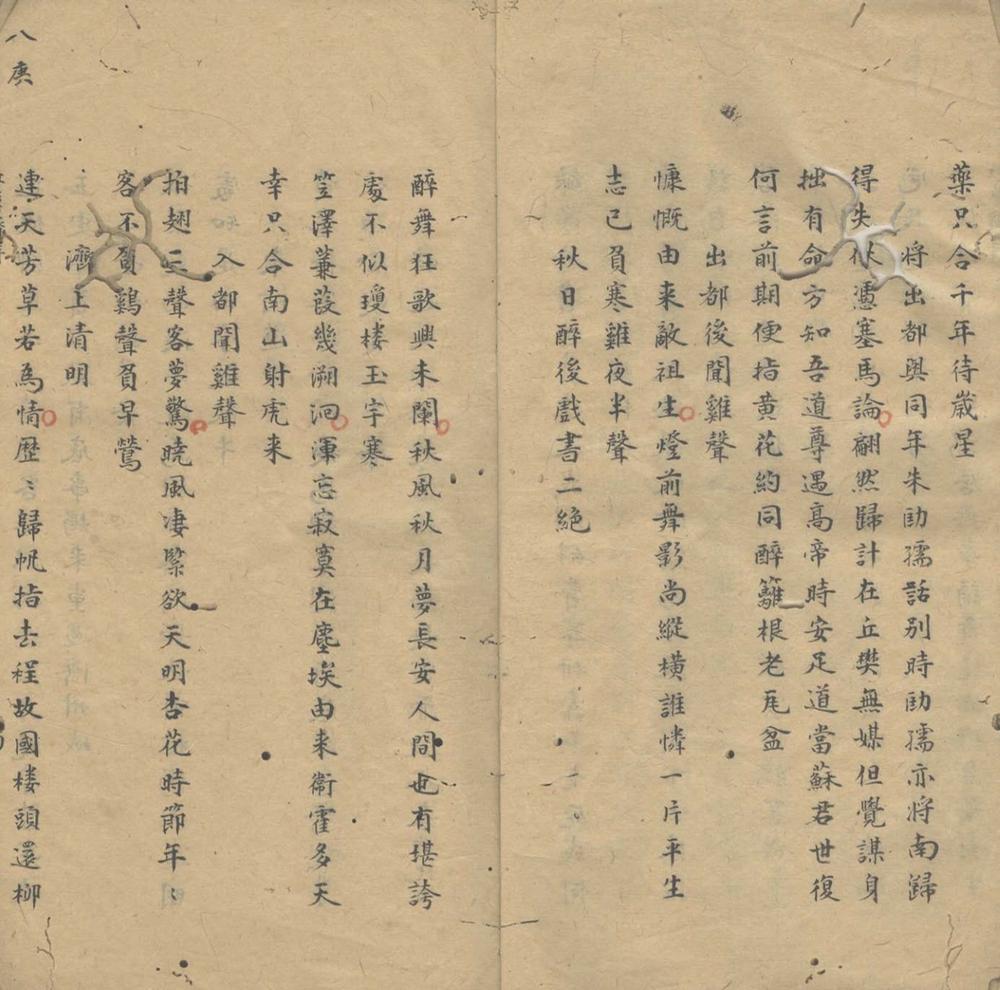 藥只合千年待歲星
將出都與同年朱劻孺話別時劻孺亦將南歸
得失休憑塞馬論翩然歸計在丘樊無媒但覺謀身
拙有命方知吾道尊遇高帝時安足道當蘇君世復
何言前期便指黄花約同醉籬根老瓦盆
出都後聞雞聲
慷慨由来敵祖生燈前舞影尚縱橫誰憐一片平生
志已負寒雞夜半聲
秋日醉後戲書二絶
醉舞狂歌興未闌秋風秋月夢長安人間也有堪誇
處不似瓊楼玉宇寒
笠澤蒹葭幾溯洄渾忘寂寞在塵埃由来衞霍多天
幸只合南山射虎来
入都聞雞聲
拍翅三聲客夢驚曉風凄緊欲天明杏花時節年〻
客不負鷄聲負早鶯
濟上清明
連天芳草若為情歷〻歸帆指去程故國楼頭還柳
八庚